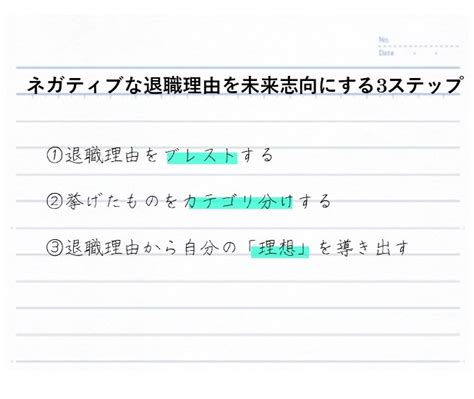 No.
Date ・ ・
ネガティブな退職理由を未来志向にする3ステップ
①退職理由をブレストする
②挙げたものをカテゴリ分けする
③退職理由から自分の「理想」を導き出す